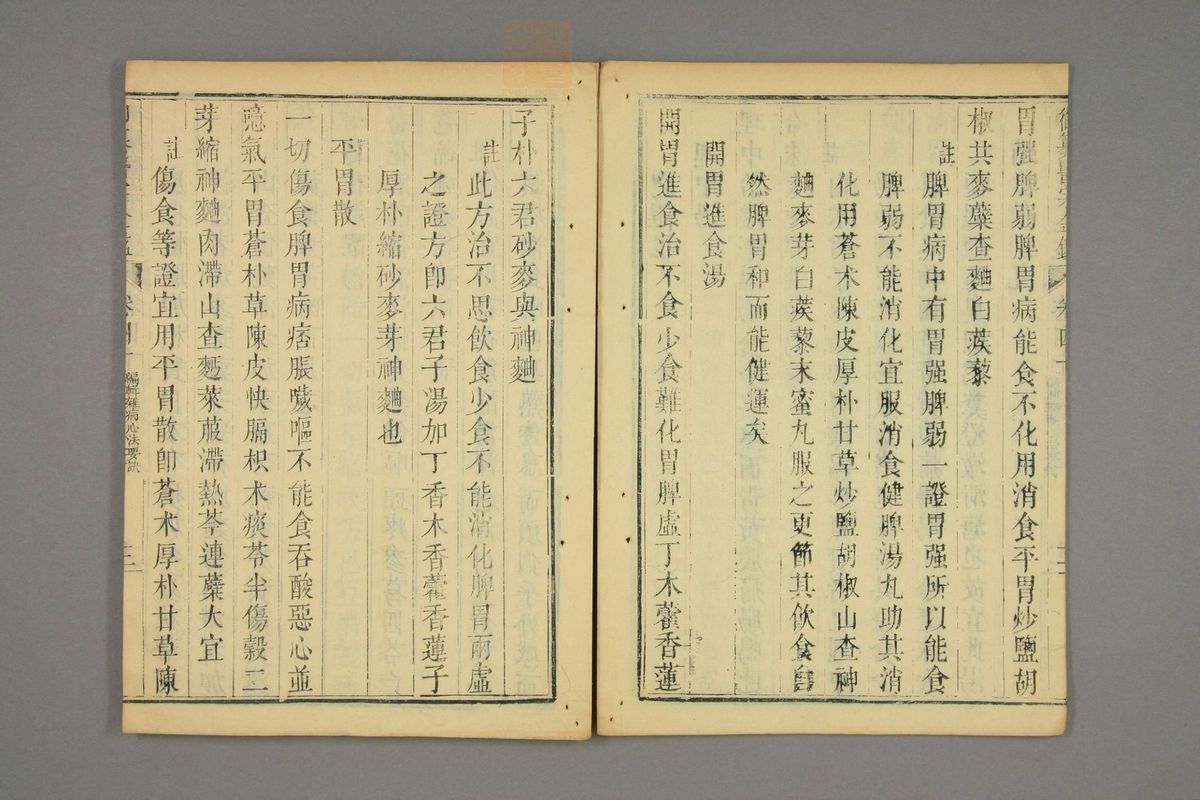 胃强脾弱脾胃病能食不化用消食平胃炒鹽胡
椒共麥蘗查麯白蒺藜
註
脾胃病中有胃强脾弱一證胃强所以能食
脾弱不能消化宜服消食健脾湯丸助其消
化用蒼术陳皮厚朴甘草炒鹽胡椒山查神
麯麥芽白蒺藜末蜜丸服之更節其飲食自
然脾胃和而能健運矣
開胃進食湯
開胃進食治不食少食難化胃脾虛丁木藿香蓮
子朴六君砂麥與神麯
註
此方治不思飲食少食不能消化脾胃兩虛
之證方卽六君子湯加丁香木香藿香蓮子
厚朴縮砂麥芽神麯也
平胃散
一切傷食脾胃病痞脹噦嘔不能食吞酸惡心並
噫氣平胃蒼朴草陳皮快膈枳术痰苓半傷穀二
芽縮神麯肉滯山查麪萊菔滯熱芩連蘗大宜
註
傷食等證宜用平胃散卽蒼术厚朴甘草陳
編輯雜病心法要訣